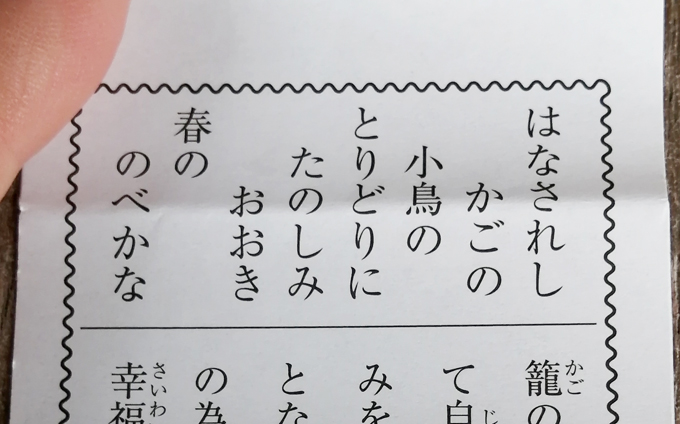 はなされし
かごの
小鳥の
とりどりに
たのしみ
おおき
春の
のべかな
籠の
て自
みを
とな
の為
幸福